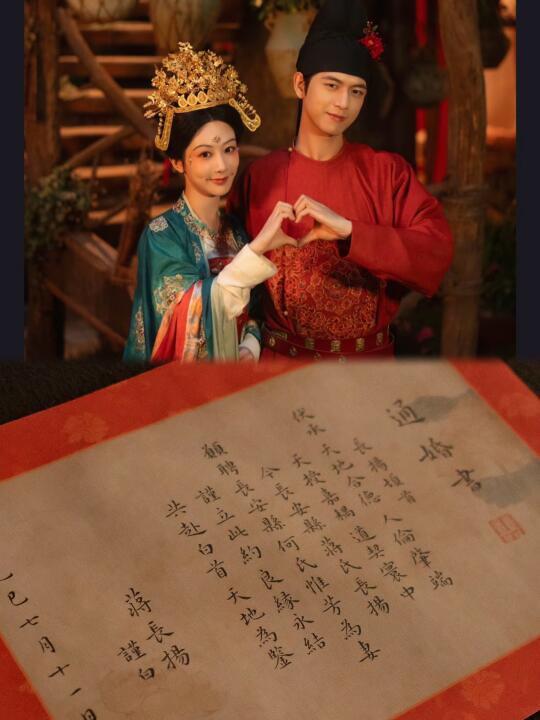 通婚書
長揚頓首 人倫肇端
伏以 天地合德 道契寰中
天授嘉耦
今長安縣蔣氏長揚
願聘長安縣何氏惟芳為妻
謹立此約 良緣永結
共赴白首 天地為鑒
蔣長揚
謹白
乙巳七月十一日